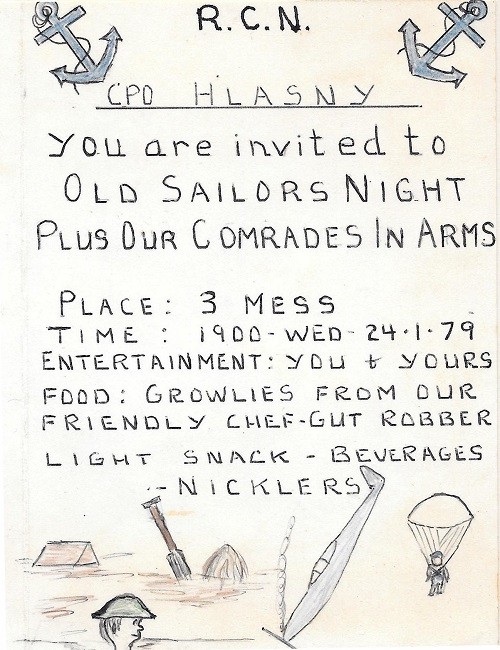 R.C.N.
CPO HLASNY
You are invited to
OLD SAILORS NIGHT
PLUS OUR COMRADES IN ARMS
PLACE: 3 MESS
TIME: 1900-WED-24·1·79
ENTERTAINMENT: YOU + YOURS
FOOD: GROWLIES FROM OUR
FRIENDLY CHEF-GUT ROBBER
LIGHT SNACK - BEVERAGES
- NICKLERS